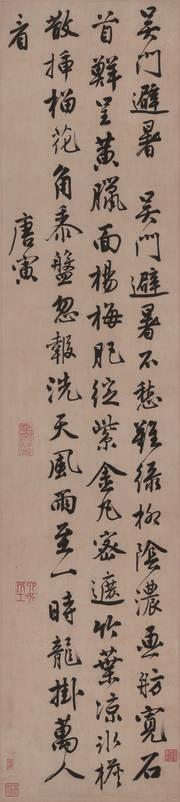 吳門避暑 吳門避暑不愁難綠柳陰濃畫舫寬石
首鮮呈黃臘面楊梅肥綻紫金丸密遮竹葉涼冰榼
散插榴花角黍盤忽報洗天風雨至一時龍掛萬人
看
唐寅